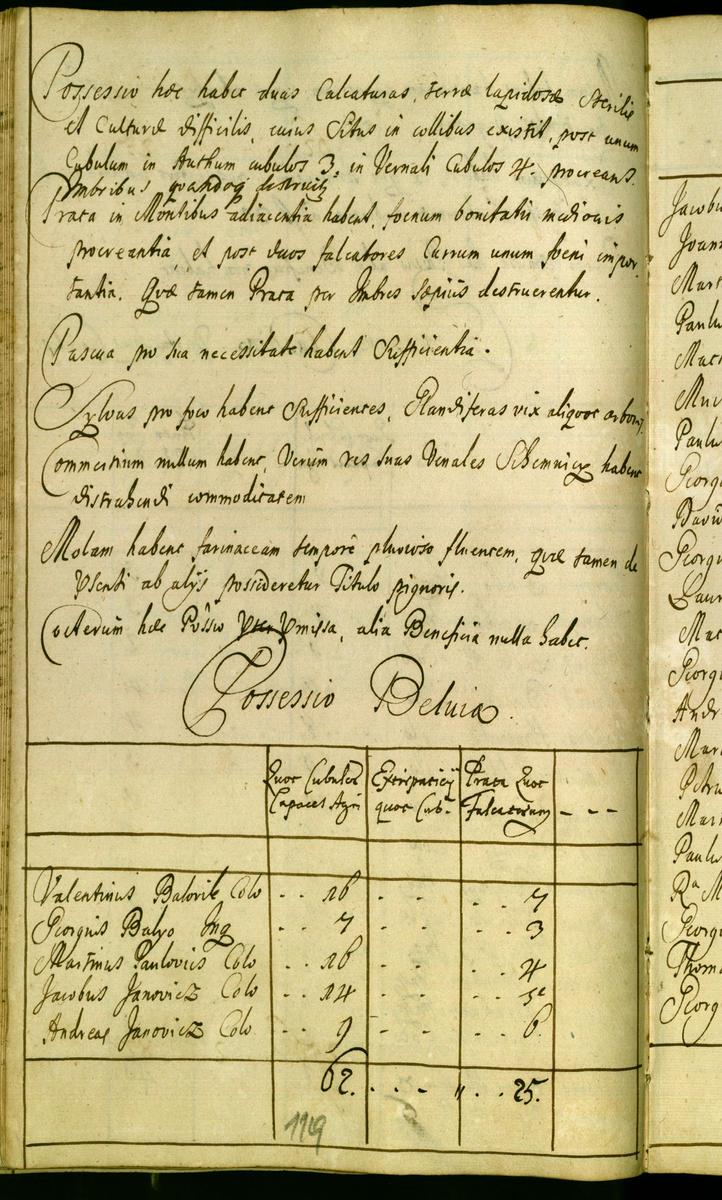 Possessio hæc habet duas Calcaturas, terræ lapidosæ Sterilis
et Culturæ difficilis, cuius Situs in collibus existit, post unum
Cubulum in Authum cubulos 3. in Vernali Cubulos 4. procreans.
Imbribus quandoq destruitr
Prata in Montibus adiacentia habent, foenum bonitatis mediocris
procreantia, et post duos falcatores Currum unum foeni impor
tantia. Quæ tamen Prata per Imbres sæpius destruerentur.
Pascua pro sua necessitate habent Sufficientia.
Sylvas pro foco habent Sufficientes, Glandiferas vix aliquot arbores
Commertium nullum habent, Verum res suas Venales Schemnicz habent
distrahendi commoditatem
Molam habent farinaceam tempore pluvioso fluentem, quæ tamen de
Præsenti ab alijs possideretur Titulo pignoris.
Cæterum hæc Possio præmissa, alia Beneficia nulla habet.
Possessio Beluia
Quot Cubulos Capaces Agri
Extirpaticij quot Cub.
Prata Quot Falcatorum
- - -
Valentinus Balovik Colo - - 16 - - - - 7
Georgius Balyo Inq - - 7 - - - - 3
Martinus Paulovics Colo - - 16 - - - - 4
Jacobus Janovicz Colo - - 14 - - - - 5
Andreas Janovicz Colo - - 9 - - - - 6.
62. - - - " - - 25.
119
Jacobu
Joann
Mart
Paulu
Mart
Paulu
Georg
Georgi
Laur
Georgi
Andr
Petru
Mart
Paulu
Georgi
Thom
Georg